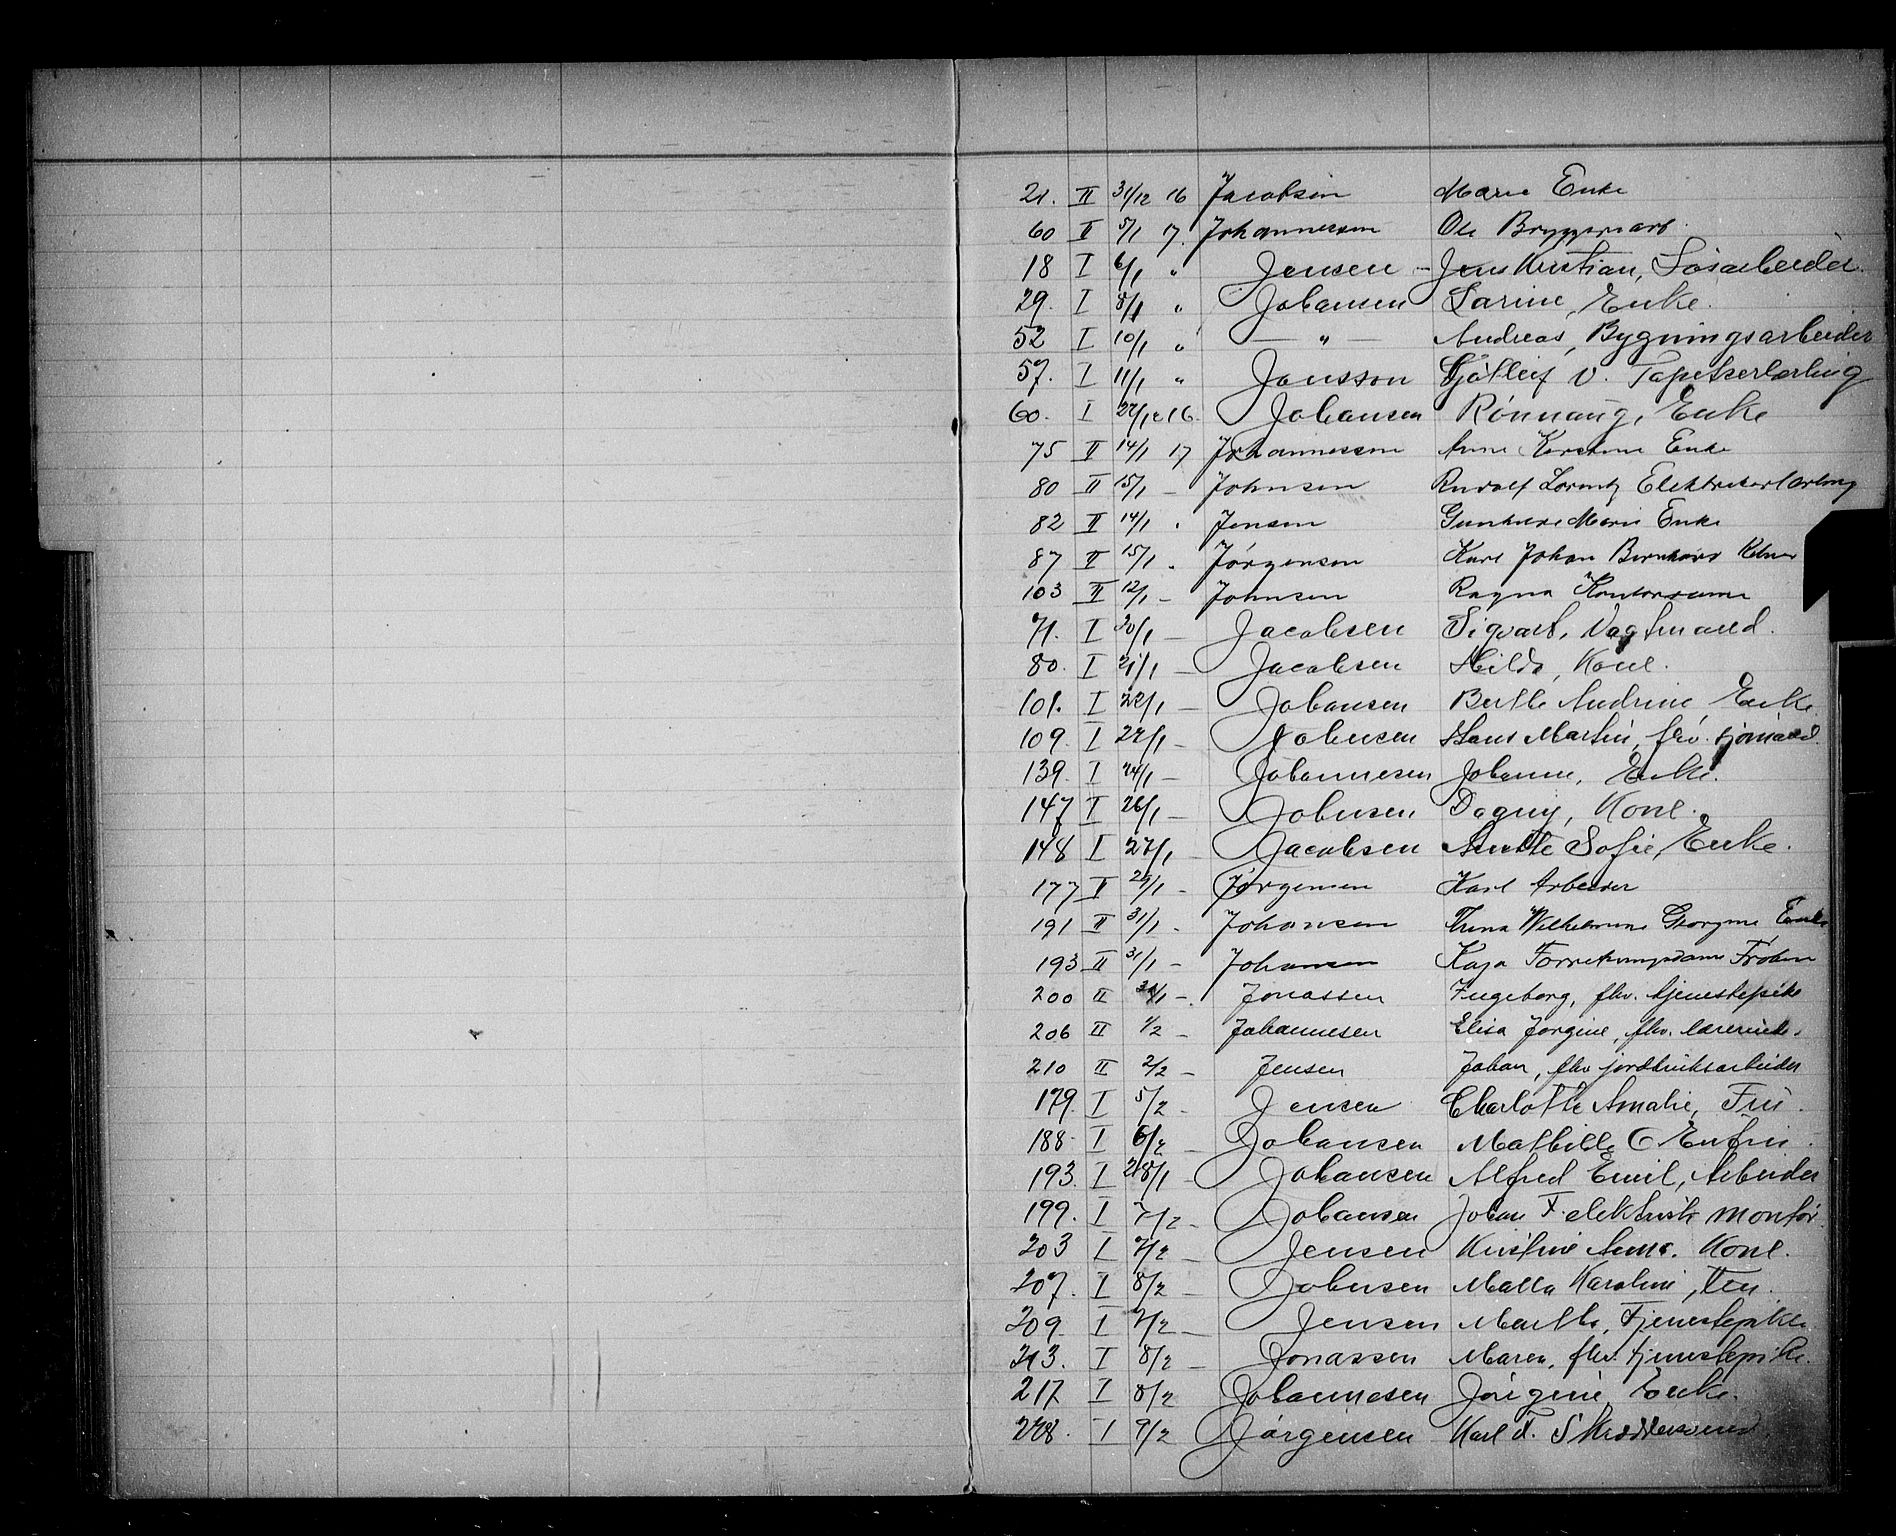 21. II 31/12 16 Jacobsen Marie Enke
60 II 5/1 17. Johannessen Ole Bryggearb.
18 I 6/1 " Jensen - Jens Kristian, Løsarbeider.
29. I 8/1 " Johansen Larine, Enke.
52 I 10/1 " — " — Andreas, Bygningsarbeider
57. I 11/1 " Jansson V. Tapetserlærling
60. I 27/12 16. Johansen Rønnaug, Enke
75 II 14/1 17 Johannessen Anne Kirstine Enke
80 II 15/1 - Johnsen Rudolf Lorentz Elektrikerlærling
82 II 14/1 . Jensen Gunhilde Marie Enke
87 II 15/1 . Jørgensen Karl Johan Bernhard Kelner
103 II 12/1 - Johnsen Ragna Kontordame
71. I 20/1 - Jacobsen Sigvart, Vagtmand.
80. I 21/1 - Jacobsen Hilda, Kone.
101. I 22/1 - Johansen Berthe Andrine Enke.
109. I 22/1 - Johnsen Hans Martin, fhv. sjømand.
139. I 24/1 - Johannesen Johanne, Enke.
147 I 26/1 - Johnsen Dagny, Kone.
148 I 27/1 - Jacobsen Anette Sofie, Enke.
177 II 29/1 - Jørgensen Karl Arbeider
191 II 31/1 - Johansen Thina Wilhelmine Georgine Enke
193 II 31/1 - Johansen Kaja Forretningsdame Frøken
200 II /1 -. Jonassen Ingeborg, fhv. tjenestepike
206 II 1/2 - Johannesen Elisa Jørgine, fhv. lærerinde.
210 II 2/2 - Jensen Johan, fhv jordbruksarbeider
179. I 5/2 - Jensen Charlotte Amalie, Fru.
188. I 6/2 - Johansen Mathilde C Enkefru.
193. I 28/1 - Johansen Alfred Emil, Arbeider
199. I 7/2 - Johansen Johan F. elektrisk montør.
203 I 7/2 - Jensen Kristine Anna. Kone.
207. I 8/2 - Johnsen Malla Karoline,
209. I 7/2 - Jensen Marthe, Tjenestepike.
213. I 8/2 - Jonassen Maren, fhv. tjenestepike.
217 I 8/2 Johannesen Jørgine Enke.
228. I 9/2 Jørgensen Karl F. Skræddersvend